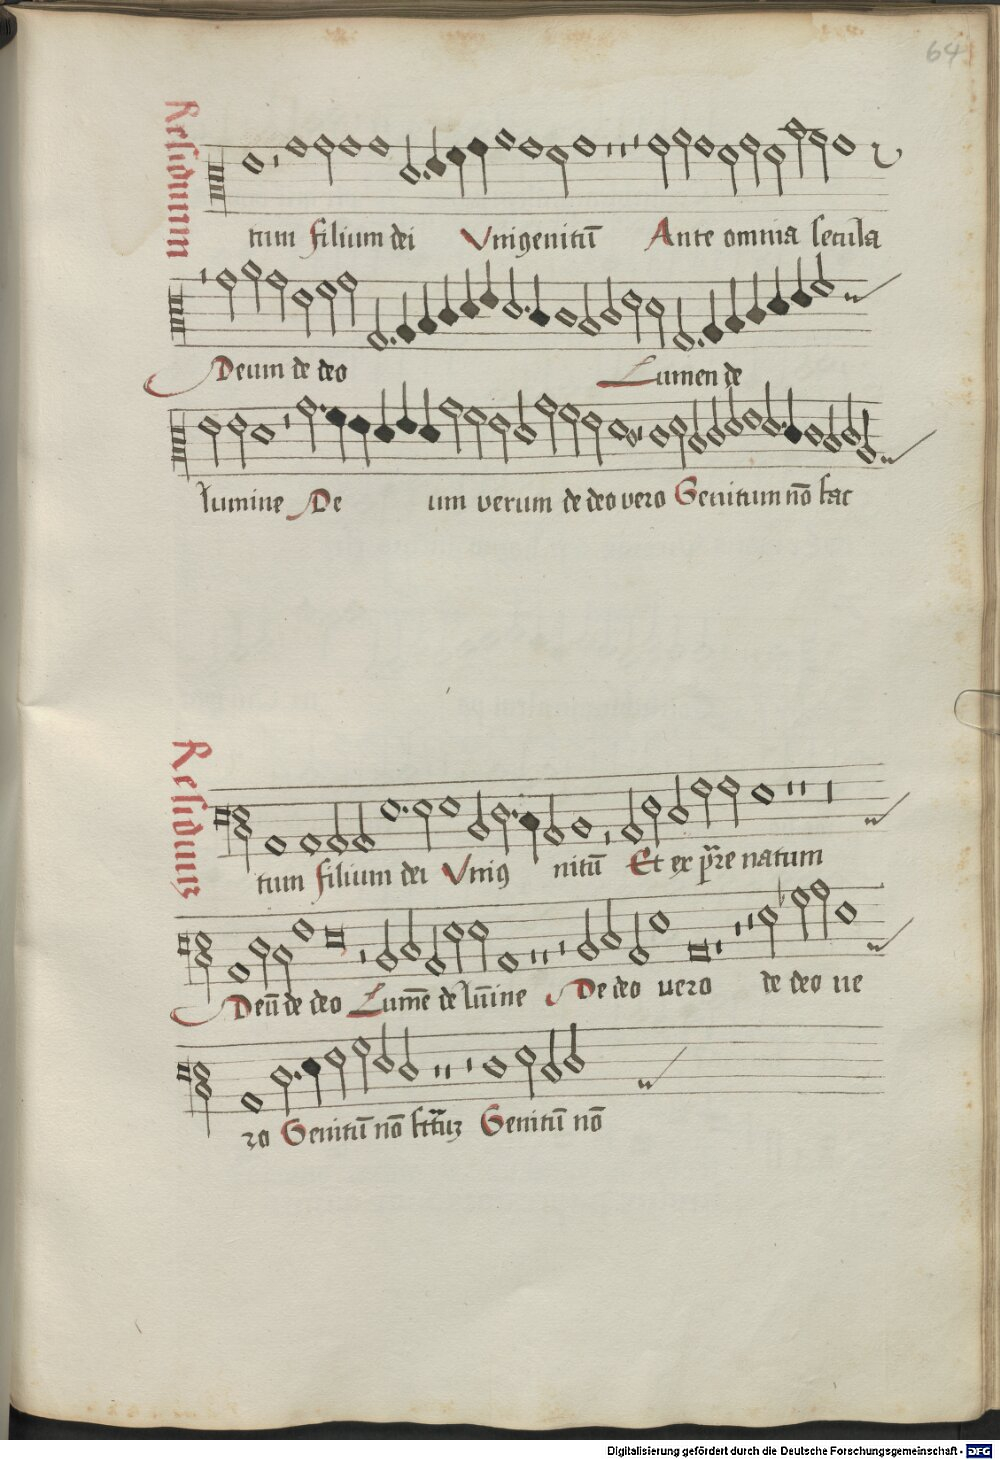 64
Residuum
tum filium dei Vnigenitū Ante omnia secula
Deum de deo Lumen de
lumine De um verum de deo vero Genitum nō fac
Residuum
tum filium dei Vnig nitū Et ex p̄re natum
Deū de deo Lumē de lūine De deo uero de deo ue
ro Genitū nō Genitū nō
Digitalisierung gefördert durch die Deutsche Forschungsgemeinschaft - DFG